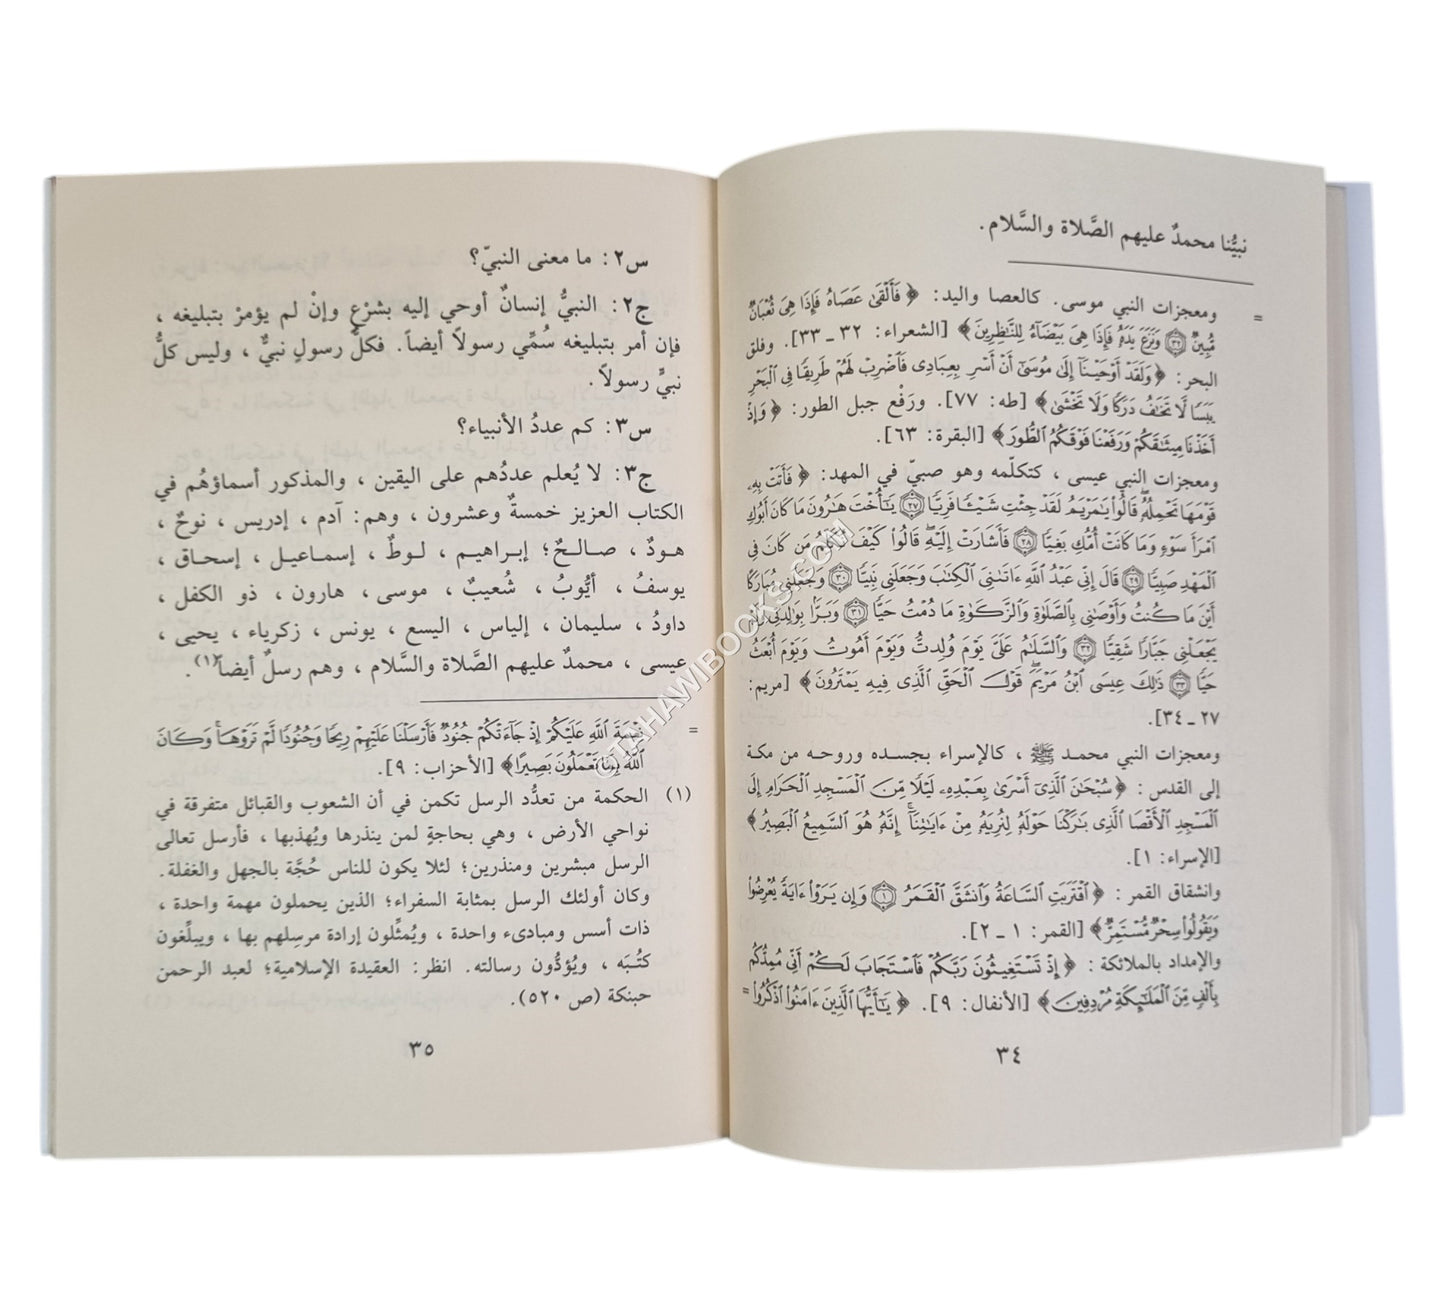 نبيُّنا محمدٌ عليهم الصَّلاة والسَّلام.
= ومعجزات النبي موسى. كالعصا واليد: ﴿ فَأَلْقَىٰ عَصَاهُ فَإِذَا هِىَ ثُعْبَانٌ
مُّبِينٌ ٣٢ وَنَزَعَ يَدَهُۥ فَإِذَا هِىَ بَيْضَآءُ لِلنَّٰظِرِينَ ﴾ [الشعراء: ٣٢ ـ ٣٣]. وفلق
البحر: ﴿ وَلَقَدْ أَوْحَيْنَآ إِلَىٰ مُوسَىٰٓ أَنْ أَسْرِ بِعِبَادِى فَٱضْرِبْ لَهُمْ طَرِيقًا فِى ٱلْبَحْرِ
يَبَسًا لَّا تَخَٰفُ دَرَكًا وَلَا تَخْشَىٰ ﴾ [طه: ٧٧]. ورَفْع جبل الطور: ﴿ وَإِذْ
أَخَذْنَا مِيثَٰقَكُمْ وَرَفَعْنَا فَوْقَكُمُ ٱلطُّورَ ﴾ [البقرة: ٦٣].
ومعجزات النبي عيسى ، كتكلّمه وهو صبيّ في المهد: ﴿ فَأَتَتْ بِهِۦ
قَوْمَهَا تَحْمِلُهُۥ ۖ قَالُوا۟ يَٰمَرْيَمُ لَقَدْ جِئْتِ شَيْـًٔا فَرِيًّا ٢٧ يَٰٓأُخْتَ هَٰرُونَ مَا كَانَ أَبُوكِ
ٱمْرَأَ سَوْءٍ وَمَا كَانَتْ أُمُّكِ بَغِيًّا ٢٨ فَأَشَارَتْ إِلَيْهِ ۖ قَالُوا۟ كَيْفَ نُكَلِّمُ مَن كَانَ فِى
ٱلْمَهْدِ صَبِيًّا ٢٩ قَالَ إِنِّى عَبْدُ ٱللَّهِ ءَاتَىٰنِىَ ٱلْكِتَٰبَ وَجَعَلَنِى نَبِيًّا ٣٠ وَجَعَلَنِى مُبَارَكًا
أَيْنَ مَا كُنتُ وَأَوْصَٰنِى بِٱلصَّلَوٰةِ وَٱلزَّكَوٰةِ مَا دُمْتُ حَيًّا ٣١ وَبَرًّۢا بِوَٰلِدَتِى وَلَمْ
يَجْعَلْنِى جَبَّارًا شَقِيًّا ٣٢ وَٱلسَّلَٰمُ عَلَىَّ يَوْمَ وُلِدتُّ وَيَوْمَ أَمُوتُ وَيَوْمَ أُبْعَثُ
حَيًّا ٣٣ ذَٰلِكَ عِيسَى ٱبْنُ مَرْيَمَ ۚ قَوْلَ ٱلْحَقِّ ٱلَّذِى فِيهِ يَمْتَرُونَ ﴾ [مريم:
٢٧ ـ ٣٤].
ومعجزات النبي محمد ﷺ ، كالإسراء بجسده وروحه من مكة
إلى القدس : ﴿ سُبْحَٰنَ ٱلَّذِىٓ أَسْرَىٰ بِعَبْدِهِۦ لَيْلًا مِّنَ ٱلْمَسْجِدِ ٱلْحَرَامِ إِلَى
ٱلْمَسْجِدِ ٱلْأَقْصَا ٱلَّذِى بَٰرَكْنَا حَوْلَهُۥ لِنُرِيَهُۥ مِنْ ءَايَٰتِنَآ ۚ إِنَّهُۥ هُوَ ٱلسَّمِيعُ ٱلْبَصِيرُ ﴾
[الإسراء: ١].
وانشقاق القمر : ﴿ ٱقْتَرَبَتِ ٱلسَّاعَةُ وَٱنشَقَّ ٱلْقَمَرُ ١ وَإِن يَرَوْا۟ ءَايَةً يُعْرِضُوا۟
وَيَقُولُوا۟ سِحْرٌ مُّسْتَمِرٌّ ﴾ [القمر: ١ ـ ٢].
والإمداد بالملائكة : ﴿ إِذْ تَسْتَغِيثُونَ رَبَّكُمْ فَٱسْتَجَابَ لَكُمْ أَنِّى مُمِدُّكُم
بِأَلْفٍ مِّنَ ٱلْمَلَٰٓئِكَةِ مُرْدِفِينَ ﴾ [الأنفال: ٩]. ﴿ يَٰٓأَيُّهَا ٱلَّذِينَ ءَامَنُوا۟ ٱذْكُرُوا۟ =
٣٤
س٢: ما معنى النبيّ؟
ج٢: النبيُّ إنسانٌ أوحي إليه بشرْعٍ وإنْ لم يؤمرْ بتبليغه ،
فإن أمر بتبليغه سُمِّي رسولاً أيضاً. فكلُّ رسولٍ نبيٌّ ، وليس كلُّ
نبيٍّ رسولاً.
س٣: كم عددُ الأنبياء؟
ج٣: لا يُعلم عددُهم على اليقين ، والمذكور أسماؤهُم في
الكتاب العزيز خمسةٌ وعشرون ، وهم: آدم ، إدريس ، نوحٌ ،
هـودٌ ، صـالـحٌ؛ إبـراهيـم ، لـوطٌ ، إسمـاعيـل ، إسحـاق ،
يوسفُ ، أيُّوبُ ، شُعيبٌ ، موسى ، هارون ، ذو الكفل ،
داودُ ، سليمان ، إلياس ، اليسع ، يونس ، زكرياء ، يحيى ،
عيسى ، محمدٌ عليهم الصَّلاة والسَّلام ، وهم رسلٌ أيضاً(١).
= نِعْمَةَ ٱللَّهِ عَلَيْكُمْ إِذْ جَآءَتْكُمْ جُنُودٌ فَأَرْسَلْنَا عَلَيْهِمْ رِيحًا وَجُنُودًا لَّمْ تَرَوْهَا ۚ وَكَانَ
ٱللَّهُ بِمَا تَعْمَلُونَ بَصِيرًا ﴾ [الأحزاب: ٩].
(١) الحكمة من تعدُّد الرسل تكمن في أن الشعوب والقبائل متفرقة في
نواحي الأرض ، وهي بحاجةٍ لمن ينذرها ويُهذبها ، فأرسل تعالى
الرسل مبشرين ومنذرين؛ لئلا يكون للناس حُجَّة بالجهل والغفلة.
وكان أولئك الرسل بمثابة السفراء؛ الذين يحملون مهمة واحدة ،
ذات أسس ومبادىء واحدة ، ويُمثِّلون إرادة مرسِلهم بها ، ويبلِّغون
كتُبَه ، ويُؤدُّون رسالته. انظر: العقيدة الإسلامية؛ لعبد الرحمن
حبنكة (ص ٥٢٠).
٣٥
©TAHAWIBOOKS.COM